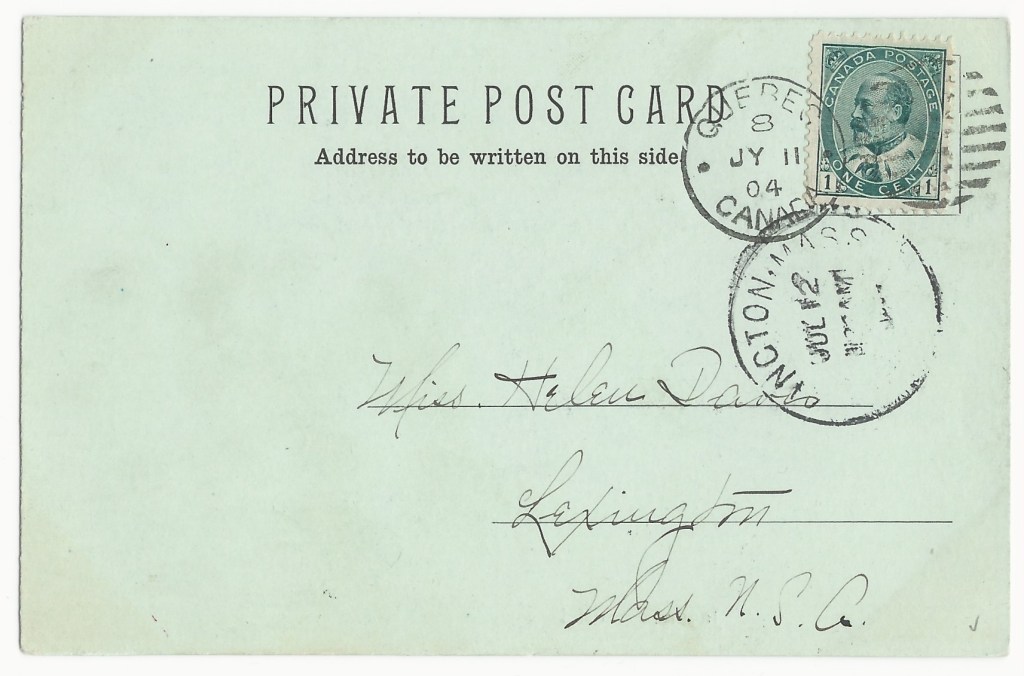 PRIVATE POST CARD
Address to be written on this side
QUEBEC
8
JY 11
04
CANADA
CANADA POSTAGE
ONE CENT
1 1
NGTON, MASS
JUL 12
AM
Miss. Helen Davis
Lexington
Mass. U. S. A.